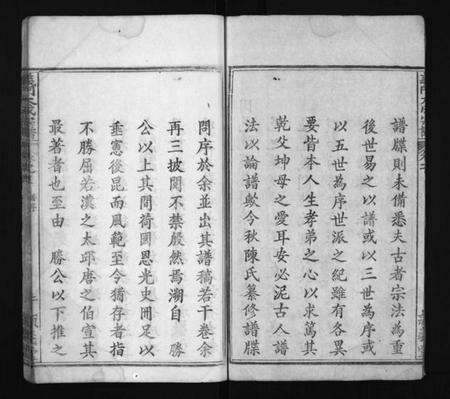 譜牒則未備悉夫古者宗法為重
後世易之以譜或以三世為序或
以五世為序世派之紀雖有各異
要皆本人生孝弟之心以求篤其
乾父坤母之愛耳安必泥古人譜
法以論譜歟今秋陳氏纂修譜牒
問序於余並出其譜稿若干卷余
再三披閱不禁嚴然焉溯自 勝
公以上其間荷國恩光史冊足以
垂憲後昆而風範至今猶存者指
不勝屈若漢之太邱唐之伯宣其
最著者也至由 勝公以下推之